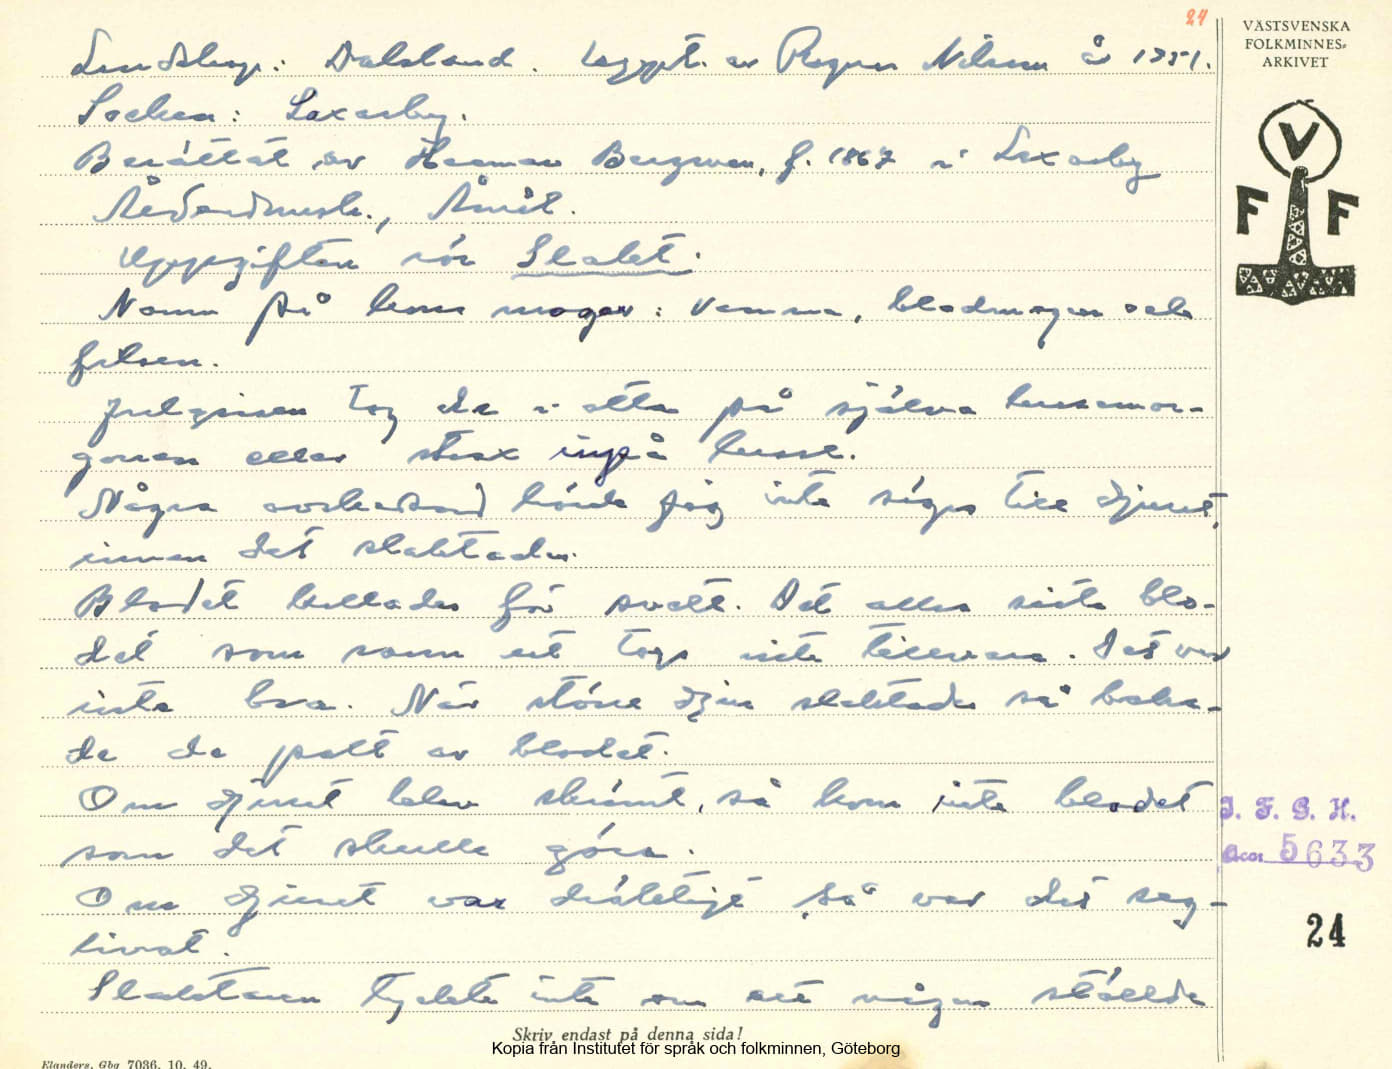 24
VÄSTSVENSKA
FOLKMINNES-
ARKIVET
V
F F
Landskap: Dalsland. Uppt. av Ragnar Nilsson år 1951.
Socken: Laxarby.
Berättat av Herman Bergman, f. 1867 i Laxarby
Ålderdomsh., Åmål.
Uppgiften rör Slakt.
Namn på kons magar: Vamma, bladmagen och
fulsen.
Julgrisen tog de i otta på själva lussemor-
gonen eller strax inpå lusse.
Några avskedsord hörde jag inte sägas till djuret,
innan det slaktades.
Blodet kallades för svett. Det allra sista blo-
det som rann ut togs inte tillvara. Det var
inte bra. När större djur slaktades så baka-
de de palt av blodet.
Om djuret blev skrämt, så kom inte blodet
som det skulle göra.
Om djuret var dräktigt så var det seg-
livat.
Slaktaren tyckte inte om att någon ställde
J. F. G. H.
Acc: 5633
24
Skriv endast på denna sida!
Kopia från Institutet för språk och folkminnen, Göteborg
Elanders, Gbg 7036. 10. 49.